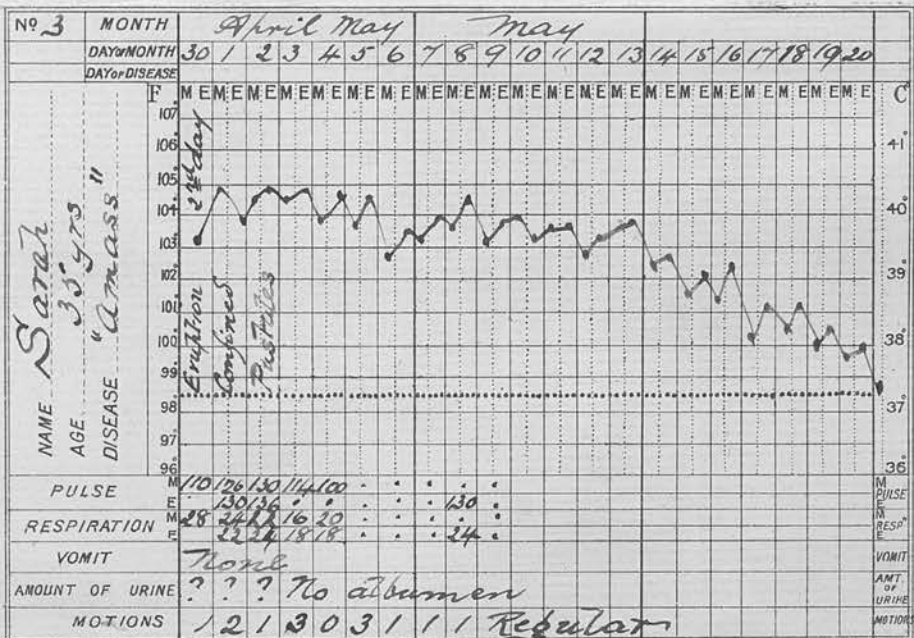 Nº 3 MONTH April May May
DAY of MONTH 30 1 2 3 4 5 6 7 8 9 10 11 12 13 14 15 16 17 18 19 20
DAY of DISEASE
F M E M E M E M E M E M E M E M E M E M E M E M E M E M E M E M E M E M E M E M E M E C
107°
106°
105°
104°
103°
102°
101°
100°
99°
98°
97°
96°
41°
40°
39°
38°
37°
36°
NAME Sarah
AGE 35 yrs
DISEASE "Amass"
2nd day
Eruption
Confined
Pustules
PULSE M 110 126 130 114 100 M PULSE
E 130 136 130 E
RESPIRATION M 28 24 22 16 20 M RESPN
E 22 24 18 18 24 E
VOMIT None VOMIT
AMOUNT OF URINE ? ? ? No albumen AMT. OF URINE
MOTIONS 1 2 1 3 0 3 1 1 1 Regular MOTIONS